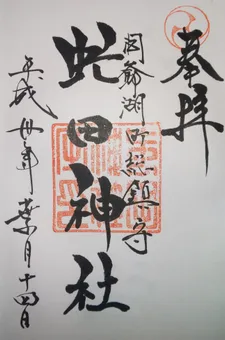 奉拝
洞爺湖町総鎮守
虻田神社
平成卅年葉月十四日